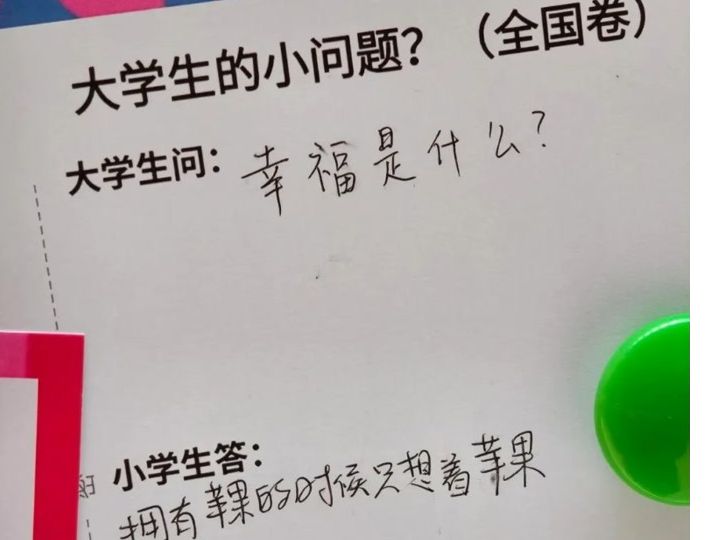 大学生的小问题？（全国卷）
大学生问：幸福是什么？
小学生答：
拥有苹果的时候只想着苹果